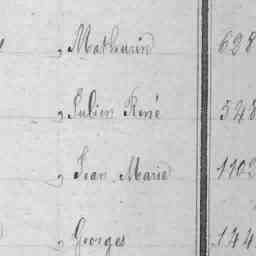 , Mathurin 628
, Julien René 548
, Jean Marie 1102
, Georges 144